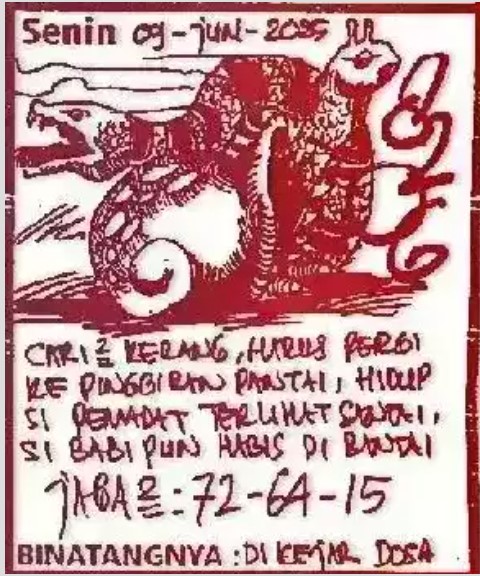 Senin 09-JUNI-2025
CARI2 KERANG, HARUS PERGI
KE PINGGIRAN PANTAI, HIDUP
SI PEMADAT TERLIHAT SANTAI,
SI BABI PUN HABIS DI BANTAI
JABA2=: 72-64-15
BINATANGNYA : DI KEJAR DOSA